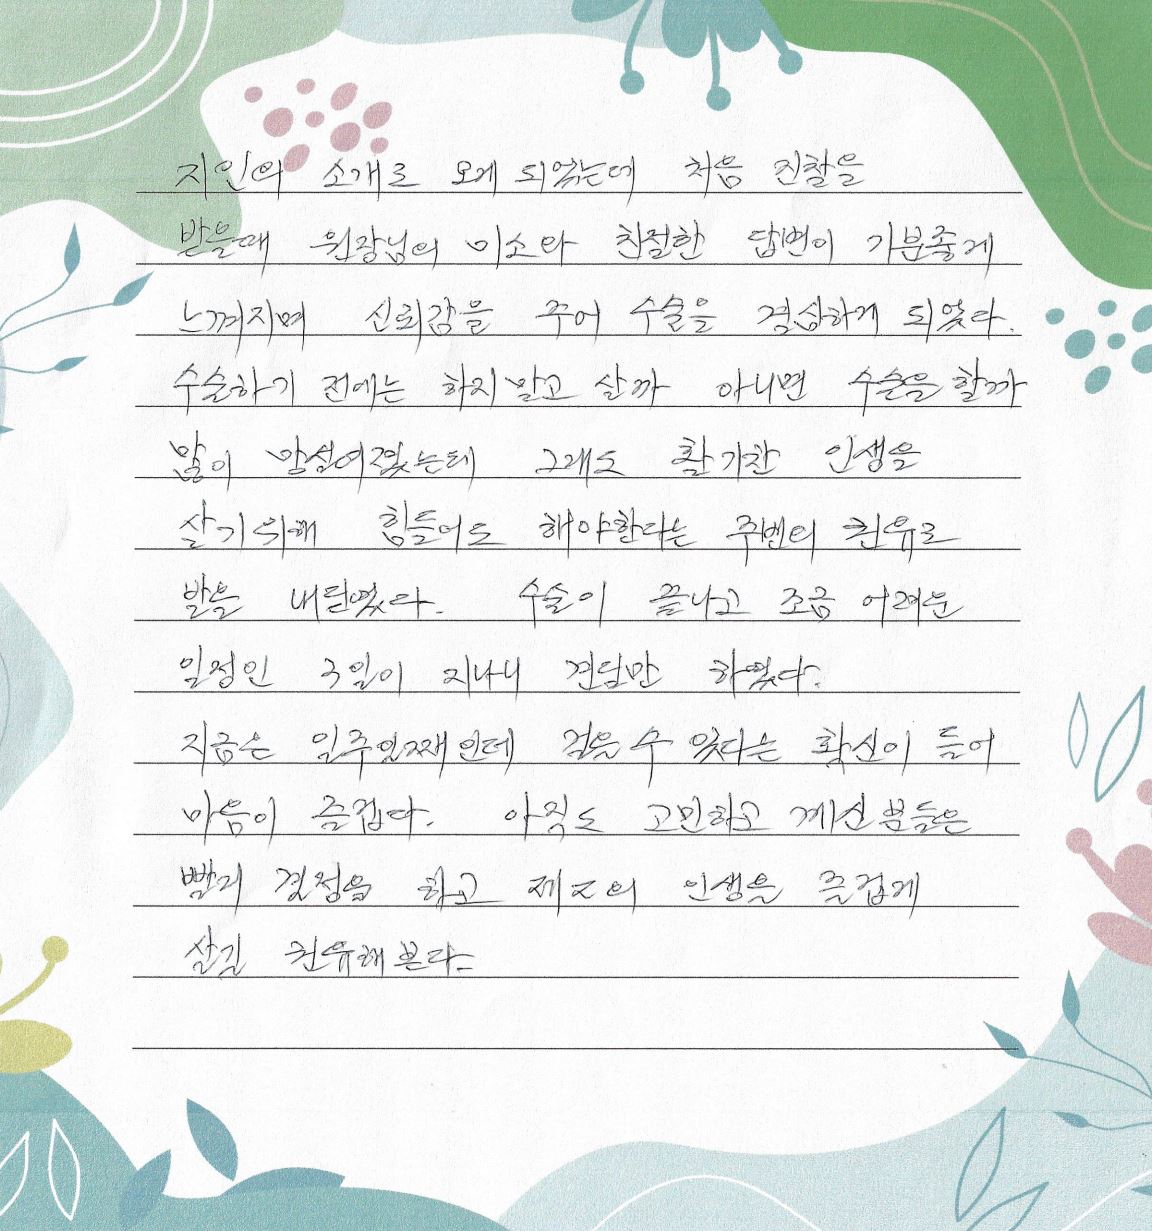 지인의 소개로 오게 되었는데 처음 진찰을
받을때 원장님의 미소와 친절한 답변이 기분좋게
느껴지며 신뢰감을 주어 수술을 결심하게 되었다.
수술하기 전에는 하지말고 살까 아니면 수술을 할까
많이 망설여졌는데 그래도 활기찬 인생을
살기위해 힘들어도 해야한다는 주변의 권유로
발을 내딛었다. 수술이 끝나고 조금 어려운
일정인 3일이 지나니 견딜만 하였다.
지금은 일주일째인데 걸을 수 있다는 확신이 들어
마음이 즐겁다. 아직도 고민하고 계신 분들은
빨리 결정을 하고 제2의 인생을 즐겁게
살길 권유해본다.